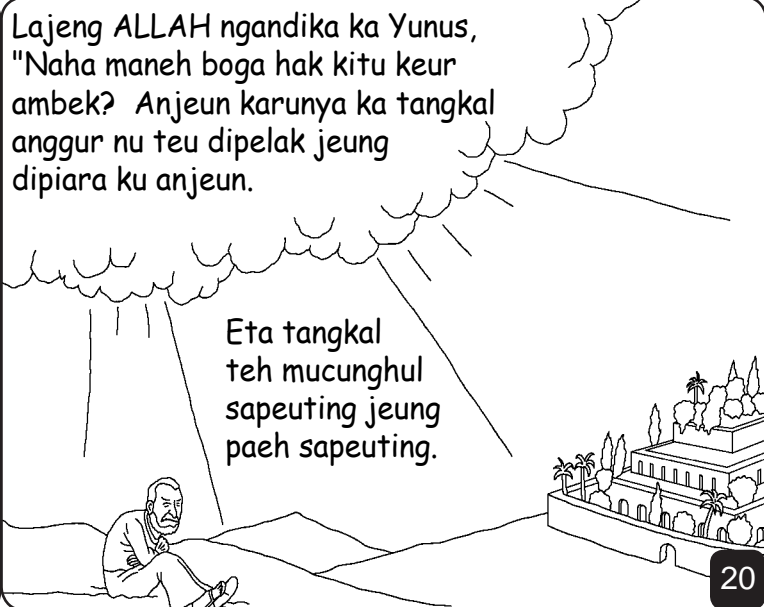 Lajeng ALLAH ngandika ka Yunus,
"Naha maneh boga hak kitu keur
ambek?  Anjeun karunya ka tangkal
anggur nu teu dipelak jeung
dipiara ku anjeun.
Eta tangkal
teh mucunghul
sapeuting jeung
paeh sapeuting.
20